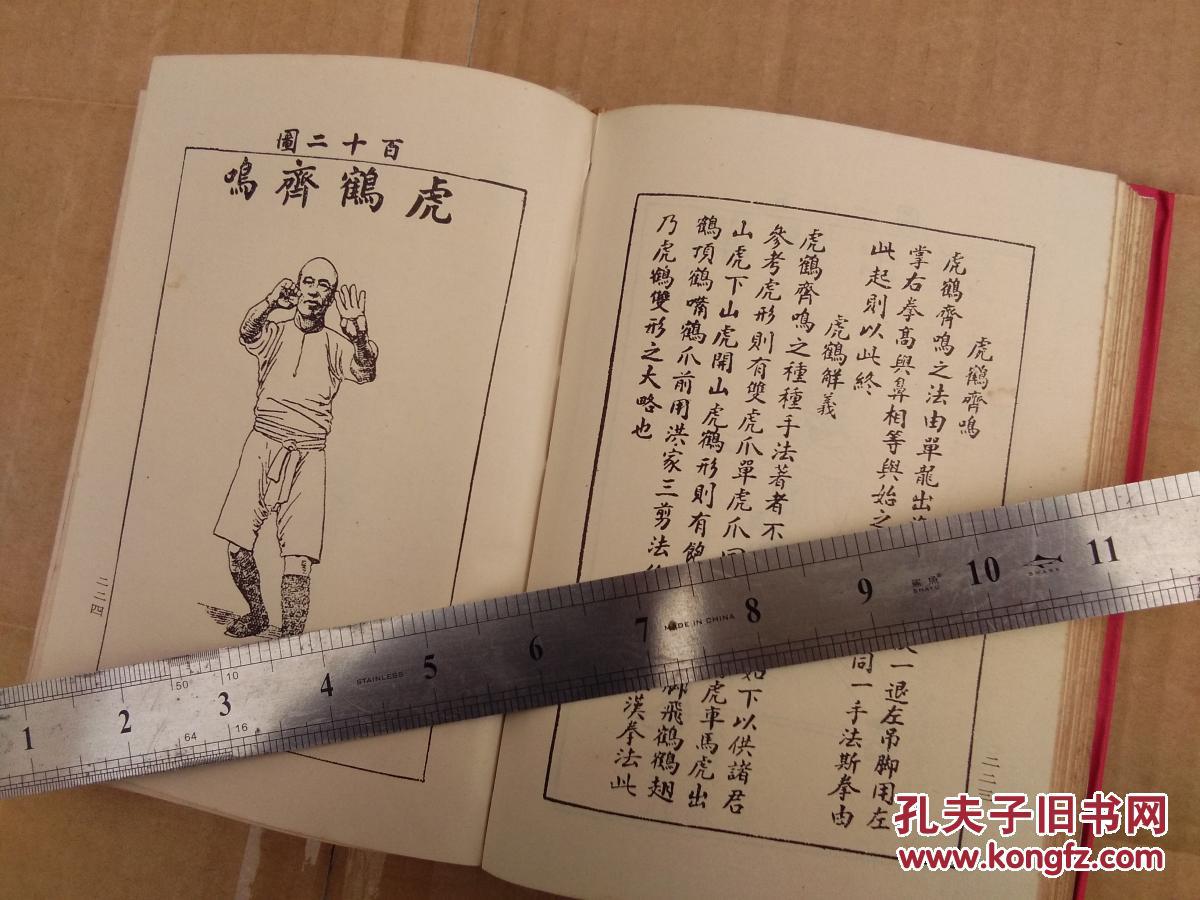 虎鶴齊鳴
虎鶴齊鳴之法由單龍出 一退左吊脚用左
掌右拳高與鼻相等與始之 同一手法斯拳由
此起則以此終
虎鶴解義
虎鶴齊鳴之種種手法著者不 如下以供諸君
參考虎形則有雙虎爪單虎爪 虎車馬虎出
山虎下山虎開山虎鶴形則有 脚飛鶴鶴翅
鶴頂鶴嘴鶴爪前用洪家三剪法 漢拳法此
乃虎鶴雙形之大略也
二二
百十二圖
虎鶴齊鳴
二二四
1 2 3 4 5 6 7 8 9 10 11
50 10
64 16
STAINLESS
MADE IN CHINA
鯊魚
SHAYU
SHARK
孔夫子旧书网
www.kongfz.com